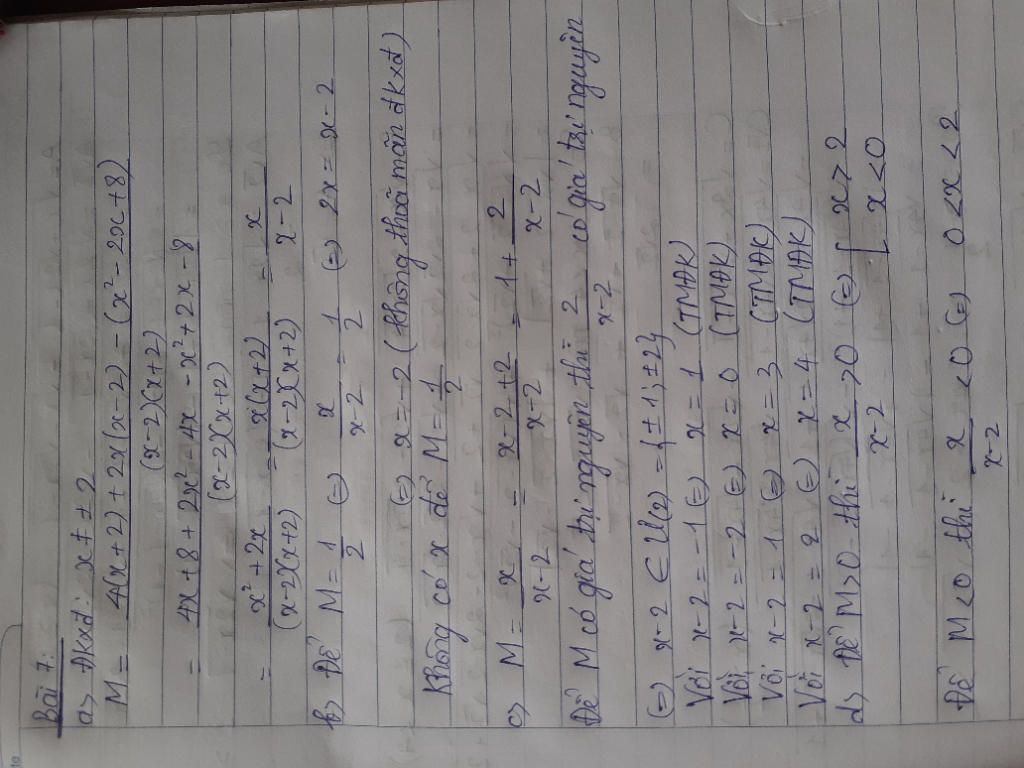 Bài 7:
a> Đkxđ: x ≠ ± 2
M = 4(x+2) + 2x(x-2) - (x² - 2x + 8) / (x-2)(x+2)
= 4x + 8 + 2x² - 4x - x² + 2x - 8 / (x-2)(x+2)
= x² + 2x / (x-2)(x+2) = x(x+2) / (x-2)(x+2) = x / x-2
b> Để M = 1/2 (=) x / x-2 = 1/2 (=) 2x = x-2
(=) x = -2 (không thoả mãn đkxđ)
Không có x để M = 1/2
c> M = x / x-2 = x-2+2 / x-2 = 1 + 2 / x-2
Để M có giá trị nguyên thì 2 / x-2 có giá trị nguyên
(=) x-2 ∈ Ư(2) = {±1; ±2}
Với x-2 = -1 (=) x = 1 (TMĐK)
Với x-2 = -2 (=) x = 0 (TMĐK)
Với x-2 = 1 (=) x = 3 (TMĐK)
Với x-2 = 2 (=) x = 4 (TMĐK)
d> Để M > 0 thì x / x-2 > 0 (=) [ x > 2
x < 0
Để M < 0 thì x / x-2 < 0 (=) 0 < x < 2